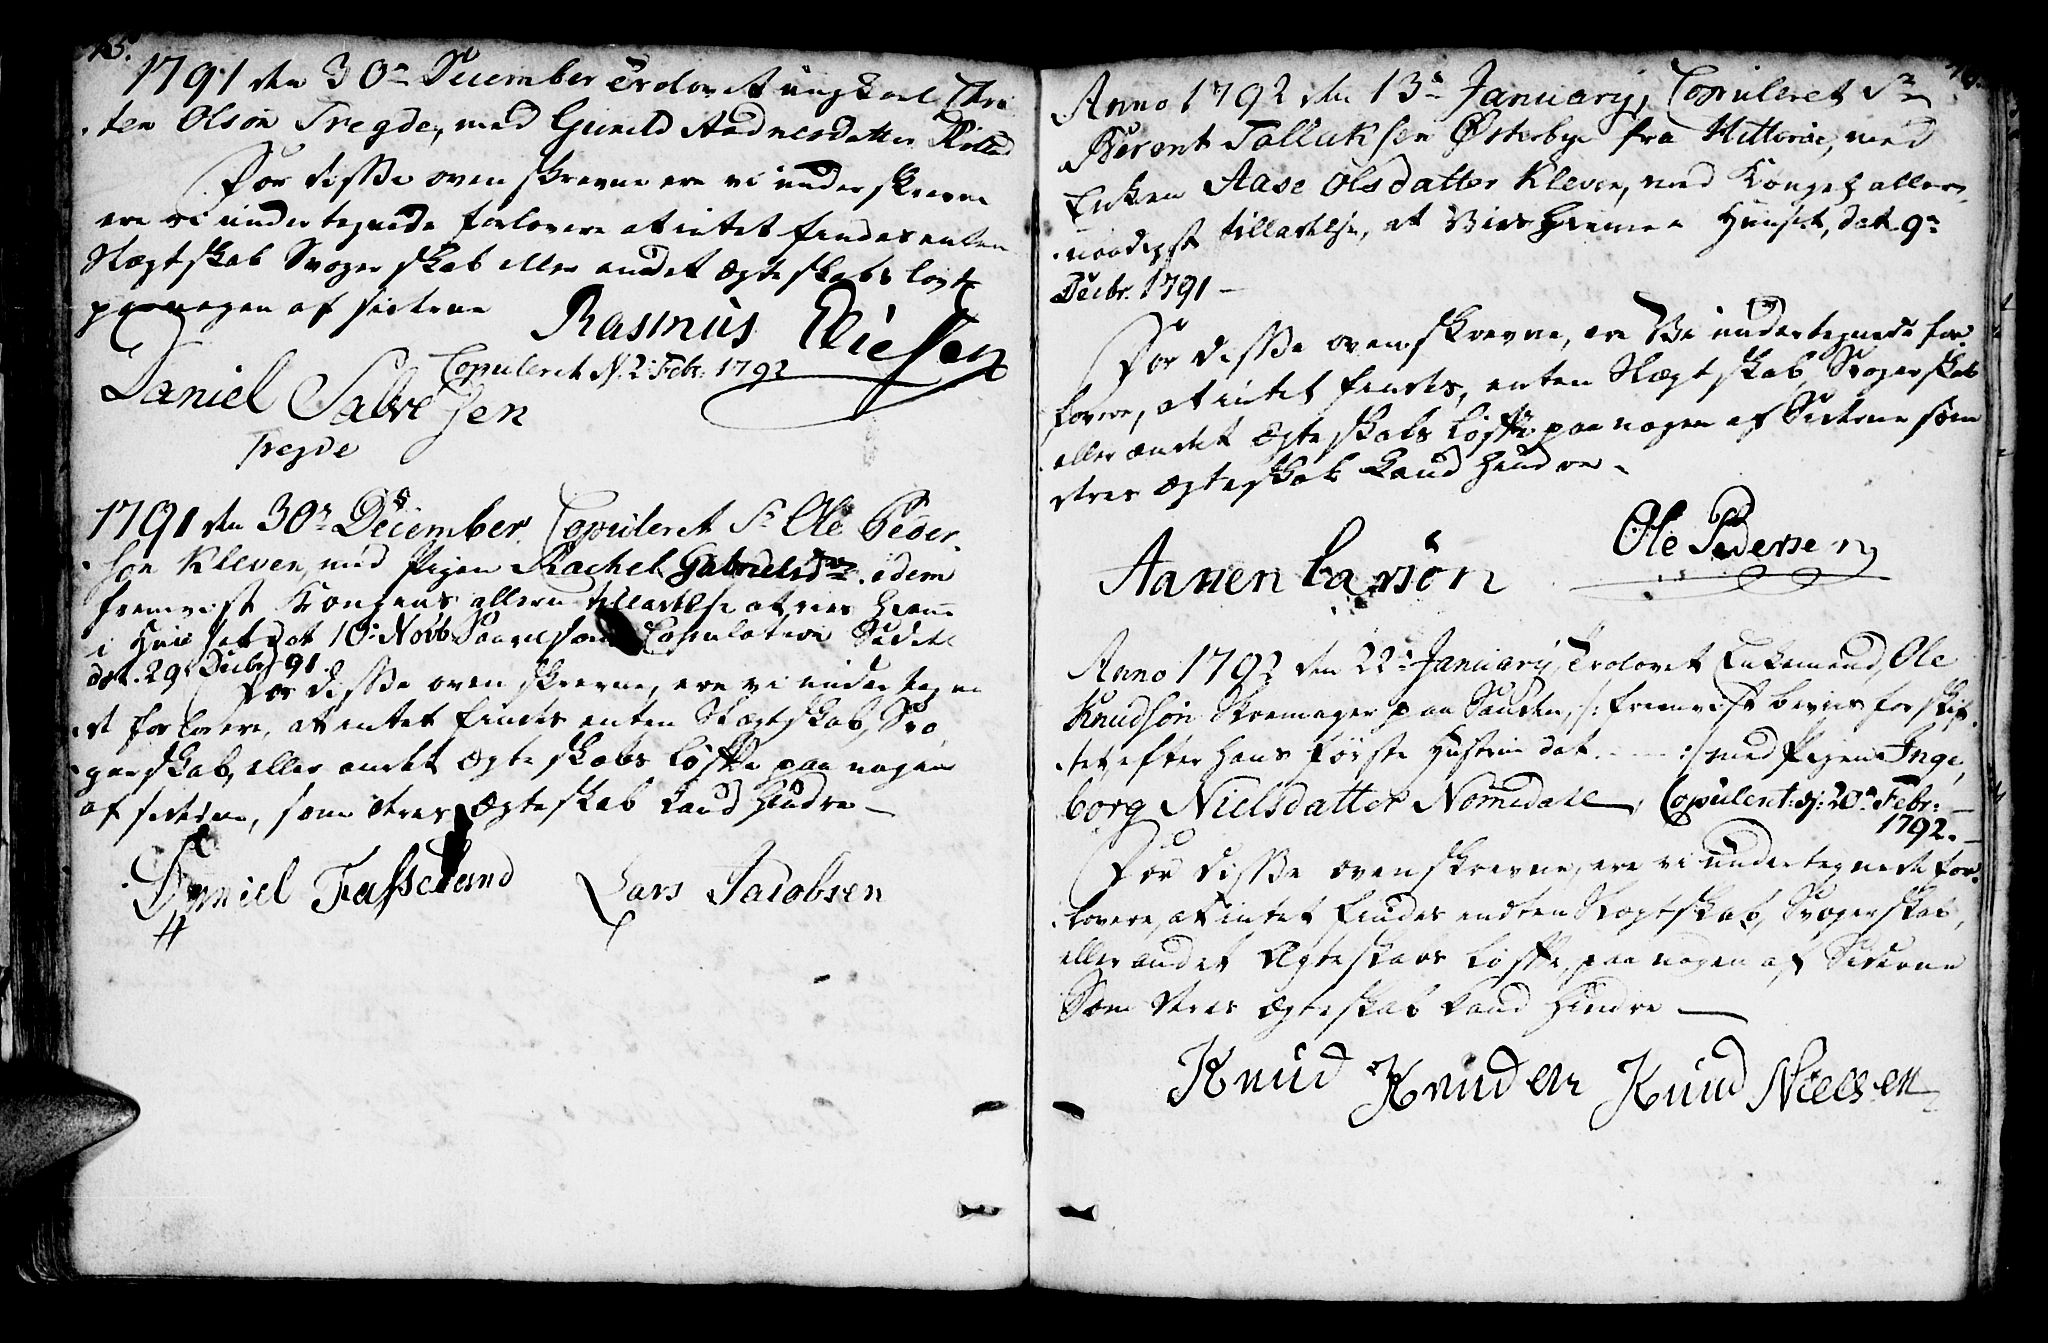 75.
1791 den 30te December Trolovet ungkarl Chri
sten Olsøn Tregde, med Gunild Aadnesdatter
For disse oven skrevne ere vi underskrevne
ere vi undertegnede forlovere at intet findes enten
Slægtskab Svogerskab eller andet Ægteskabs løfte
paa nogen af siderne
Rasmus Eliesen
Copuleret d. 2: Febr: 1792
Daniel Salvesen
Tregde
1791 den 30te December Copuleret Sr Ole Peder-
søn Kleven, med Pigen Rachel Gabrielsdtr idem
fremvist Kongens allern tilladelse at vies hjeme
i Huuset dat 10: Novb Saavelsom Copulations Sedel
dat. 29 Decbr 91.
For disse oven skrevne, ere vi underteg ne
de forlovere, at intet findes enten Slægtskab, Svo
gerskab, eller andet Ægteskabs Løfte paa nogen
af siderne, som deres Ægteskab kand Hindre
Daniel Fasseland Lars Jacobsen
76.
Anno 1792 den 13de January, Copuleret Sr
Berent Tollaksen Østerbye fra Hitterøe, med
Enken Aase Olsdatter Kleven, med Kongel aller-
naadigst tilladelse, at Vies hjemme i Huuset, dat 9de
Decbr. 1791
For disse ovenskrevne, ere Vi undertegnede for-
lovere, at intet findes, enten Slægtskab, Svogerskab
eller andet Ægteskabs Løfte paa nogen af Siderne som
deres Ægteskab kand Hindre
Aanen Larsøn Ole Pedersen
Anno 1792 den 22de January, Trolovet Enkemand, Ole
Knudsøn Skomager paa Sanden, /: fremvist beviis for skif-
tet efter hans første Hustrue dat. — :/ med Pigen Inge-
borg Nielsdatter Nomedahl, Copuleret: d: 20de Febr:
1792.
For disse ovenskrevne, ere vi undertegnede for-
lovere, at intet findes endten Slægtskab, Svogerskab,
eller andet Ægteskabs Løfte, paa nogen af Siderne
Som deres Ægteskab kand Hindre
Knud Knudsen Knud Nielsen